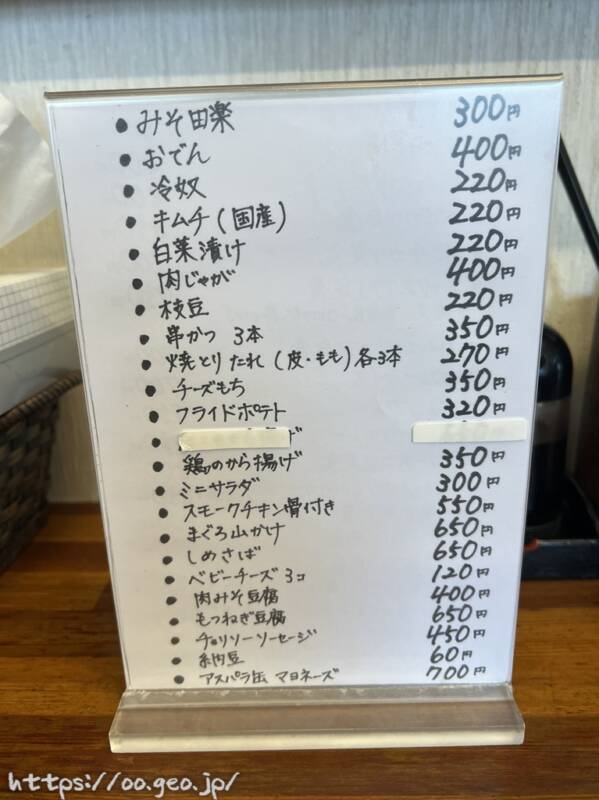 • みそ田楽 300円
• おでん 400円
• 冷奴 220円
• キムチ(国産) 220円
• 白菜漬け 220円
• 肉じゃが 400円
• 枝豆 220円
• 串かつ 3本 350円
• 焼とり たれ (皮・もも) 各3本 270円
• チーズもち 350円
• フライドポテト 320円
•
• 鶏のから揚げ 350円
• ミニサラダ 300円
• スモークチキン骨付き 550円
• まぐろ山かけ 650円
• しめさば 650円
• ベビーチーズ 3コ 120円
• 肉みそ豆腐 400円
• もつねぎ豆腐 650円
• チョリソーソーセージ 450円
• 納豆 60円
• アスパラ缶 マヨネーズ 700円
https://oo.geo.jp/